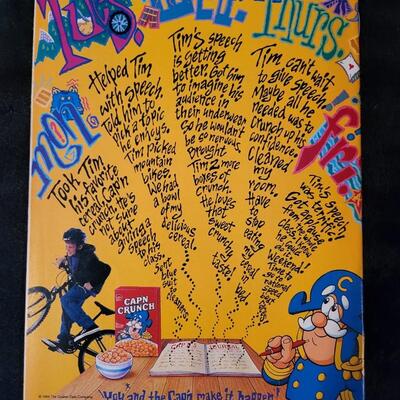 Tues.
Thurs.
fri.
Took Tim
his favorite
cereal, Cap'n
Crunch. He's
not sure
about
giving a
speech
to his
class.
Sent
blue
suit
to
cleaners.
Helped Tim
with speech.
Told him to
pick a topic
he enjoys.
Tim picked
mountain
bikes.
We had
a bowl
of my
delicious
cereal.
Tim's speech
is getting
better. Got him
to imagine his
audience in
their underwear
so he wouldn't
be so nervous.
Brought
Tim 2 more
boxes of
Crunch.
He loves
that
sweet
crunchy
taste!
Tim can't wait
to give speech.
Maybe all he
needed was to
Crunch up his
confidence.
Cleaned
my
room.
Have
to
stop
eating
my
cereal
in
bed.
Tim's speech
was terrific!
Got applause
from the
class.
Weekend!
Time to
CAP'N
CRUNCH
You and the Cap'n make it happen!
© 1994 The Quaker Oats Company